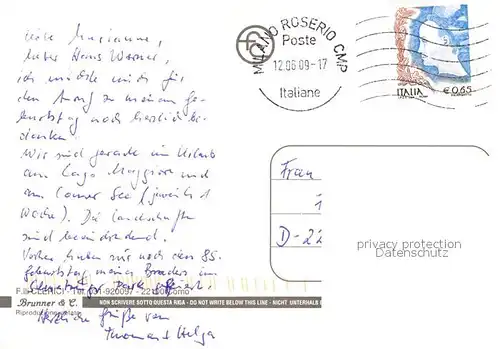 Liebe Marianne,
lieber Hans Werner,
ich möchte mich für
den Anruf zu meinem Ge-
burtstag noch herzlich be-
danken.
Wir sind gerade im Urlaub
am Lago Maggiore und
am Comer See (jeweils 1
Woche). Die Landschaften
sind beeindruckend.
Vorher haben wir noch den 85.
Geburtstag meines Bruders im
gefeiert.
Herzliche Grüße von
Thomas + Helga
MILANO ROSERIO CMP
Poste
12.06.09-17
Italiane
ITALIA €0,65
Frau
D-22
privacy protection
Datenschutz
F.lli CLERICI - Tel. 031-920097 - 22100 Como
Brunner & C.
NON SCRIVERE SOTTO QUESTA RIGA - DO NOT WRITE BELOW THIS LINE - NICHT UNTERHALB
Riproduzione vietata